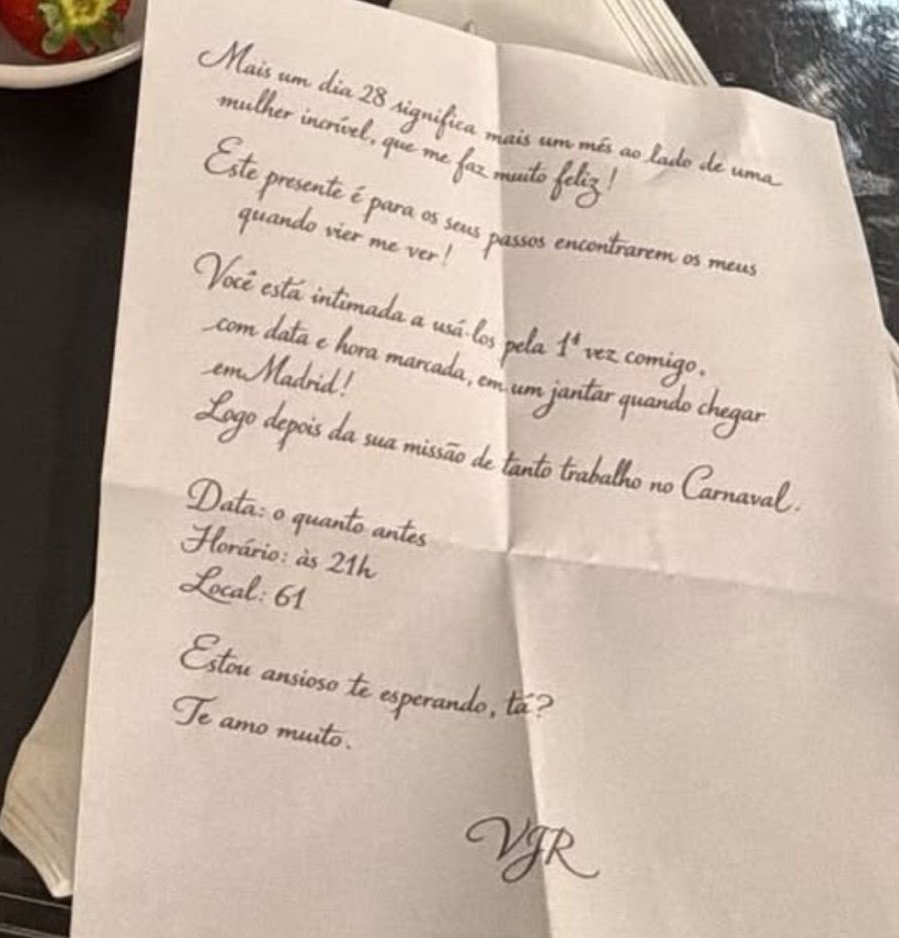 Mais um dia 28 significa mais um mês ao lado de uma
mulher incrível, que me faz muito feliz!
Este presente é para os seus passos encontrarem os meus
quando vier me ver!
Você está intimada a usá-los pela 1ª vez comigo,
com data e hora marcada, em um jantar quando chegar
em Madrid!
Logo depois da sua missão de tanto trabalho no Carnaval.
Data: o quanto antes
Horário: às 21h
Local: 61
Estou ansioso te esperando, tá?
Te amo muito.
VJR